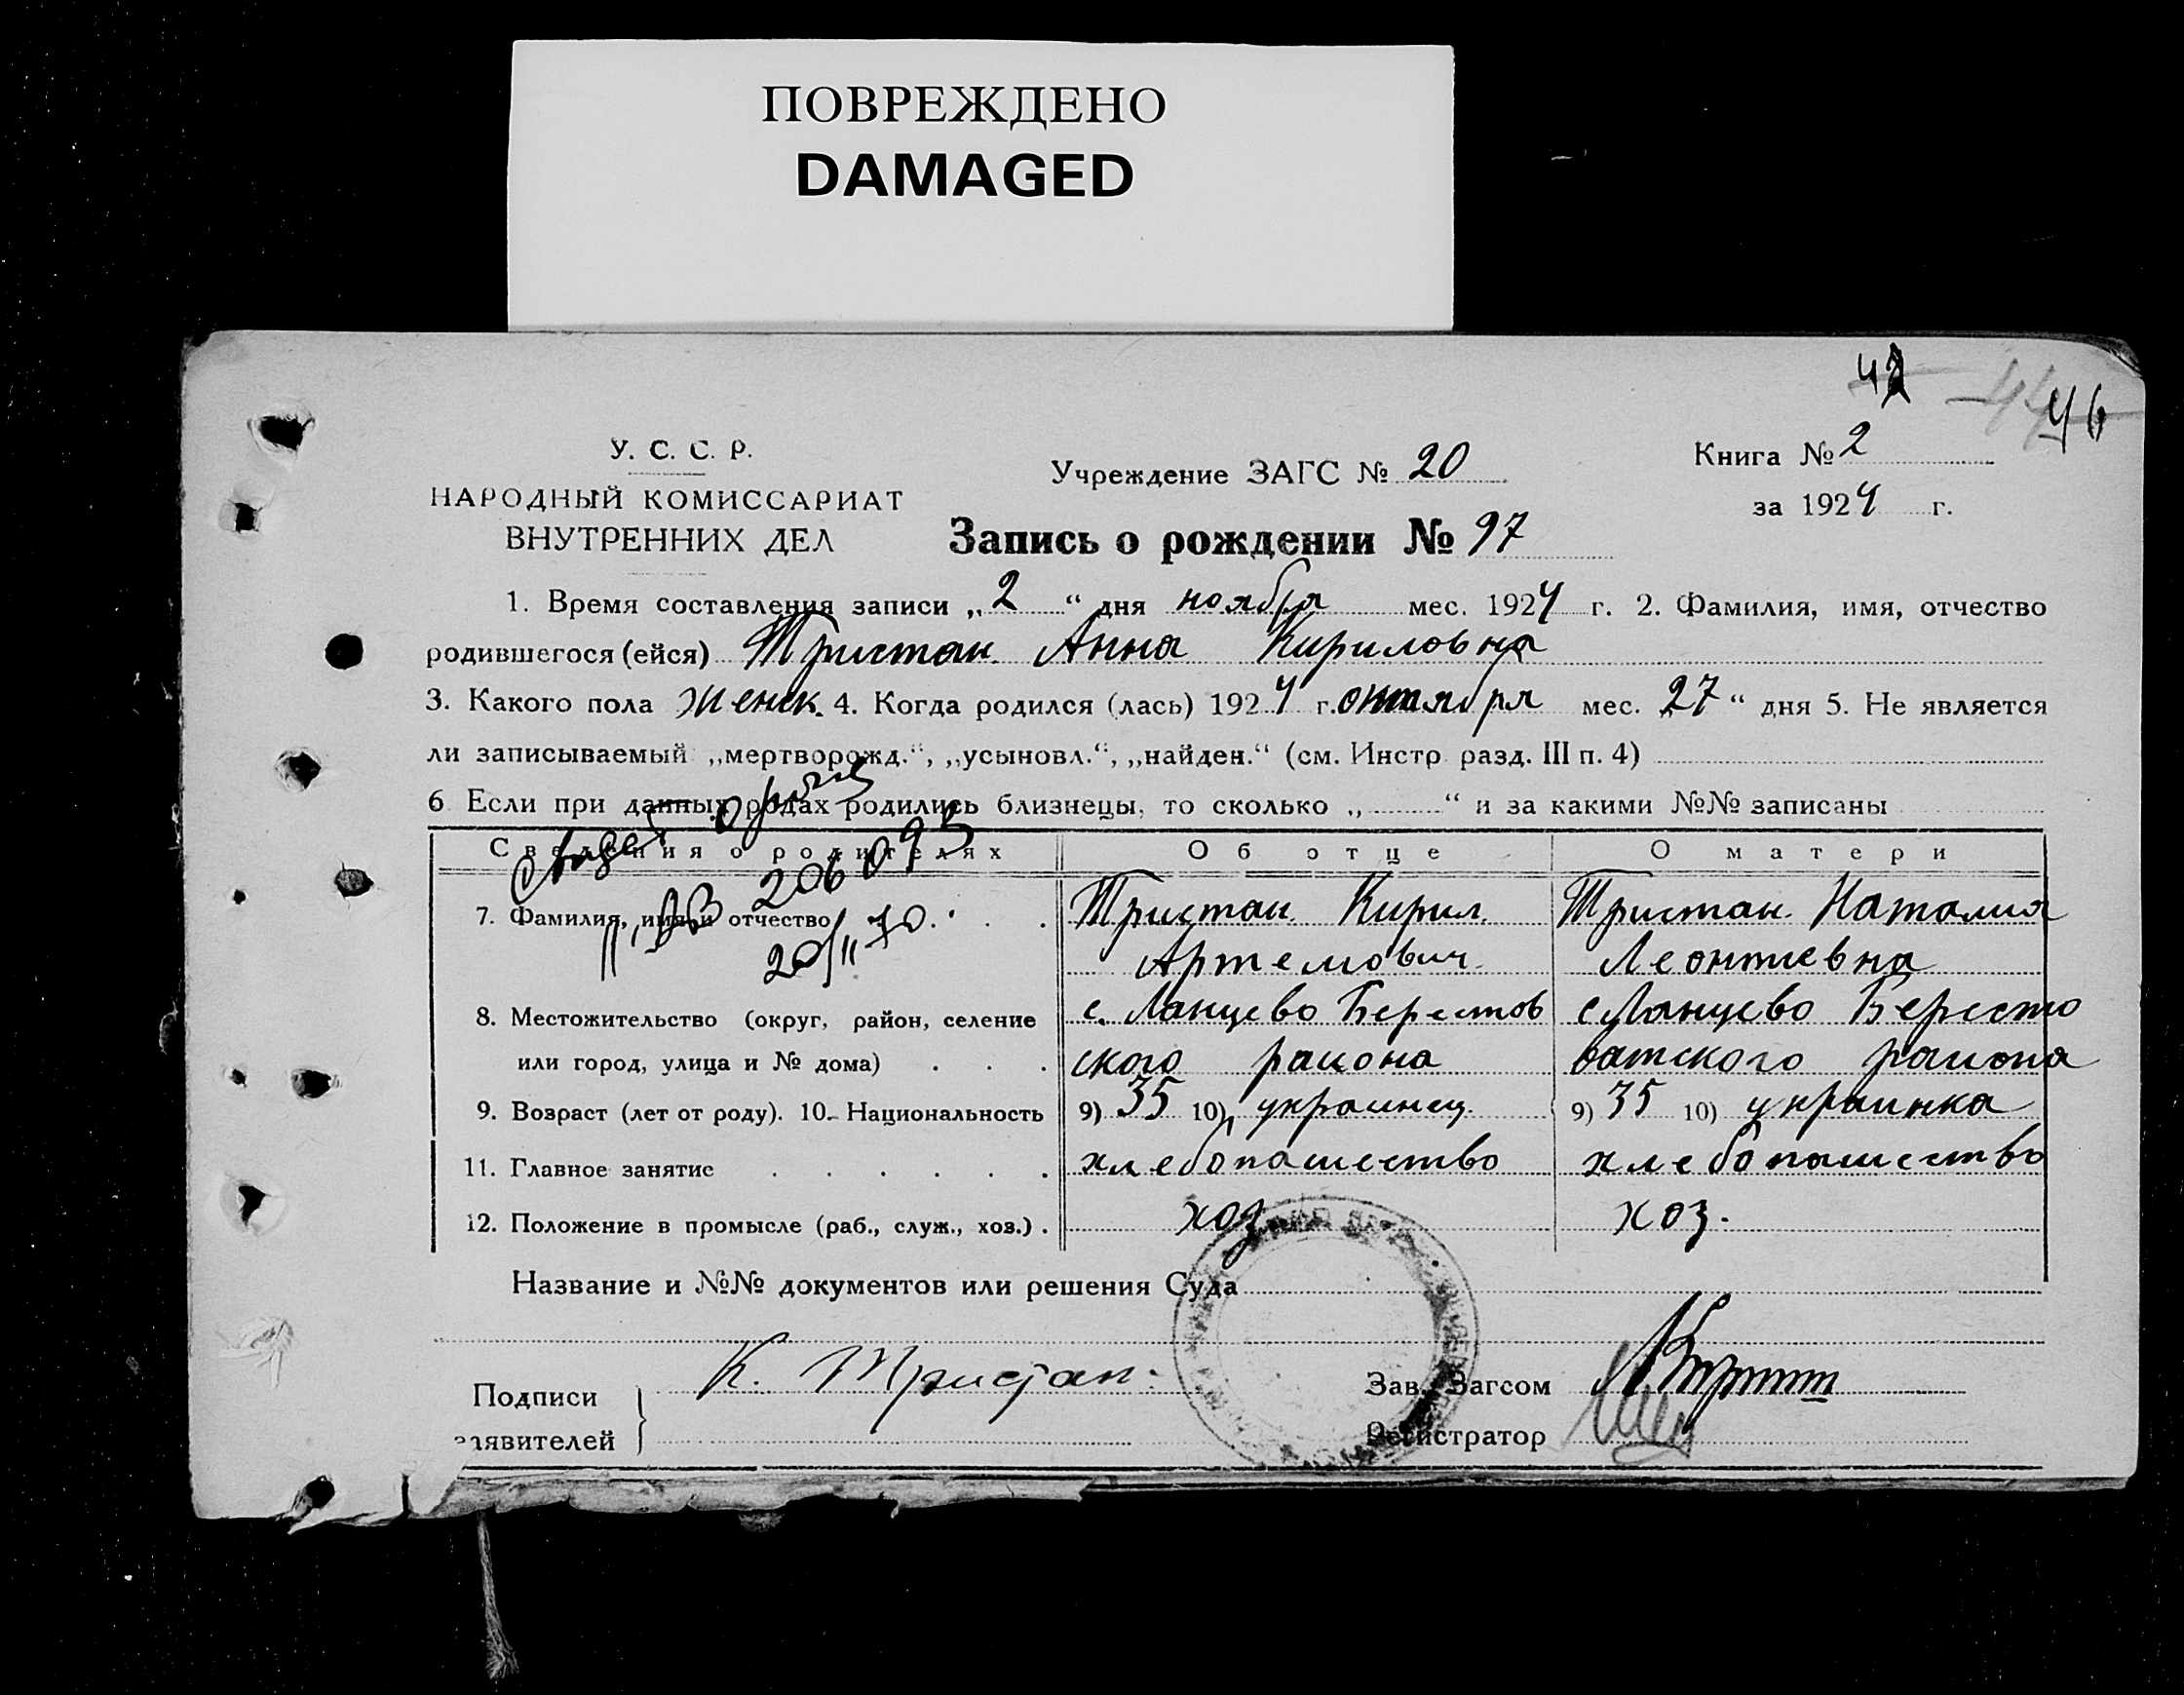 ПОВРЕЖДЕНО
DAMAGED
42 44 46
У. С. С. Р.
НАРОДНЫЙ КОМИССАРИАТ
ВНУТРЕННИХ ДЕЛ
Учреждение ЗАГС № 20
Книга № 2
за 1924 г.
Запись о рождении № 97
1. Время составления записи „2“ дня ноября мес. 1924 г. 2. Фамилия, имя, отчество
родившегося (ейся) Тристан Анна Кириловна
3. Какого пола женск. 4. Когда родился (лась) 1924 г. октября мес. 27“ дня 5. Не является
ли записываемый „мертворожд.“, „усыновл.“, „найден.“ (см. Инстр. разд. III п. 4)
6 Если при данных родах родились близнецы, то сколько „ “ и за какими №№ записаны
Сведения о родителях Об отце О матери
о рожд
206095
II ЯВ
20/II 70.
7. Фамилия, имя и отчество Тристан Кирил Тристан Наталия
Артемович Леонтиевна
8. Местожительство (округ, район, селение с. Ланцево Берестов с Ланцево Бересто
или город, улица и № дома) ского района ватского района
9. Возраст (лет от роду). 10. Национальность 9) 35 10) украинец 9) 35 10) украинка
11. Главное занятие хлебопашество хлебопашество
12. Положение в промысле (раб., служ., хоз.) хоз. хоз.
Название и №№ документов или решения Суда
Подписи К. Тристан Зав. Загсом
заявителей Регистратор